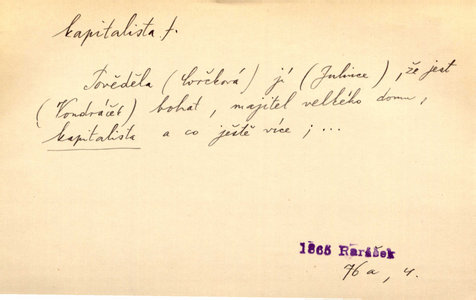 kapitalista f.
Pověděla (Vorčková) jí (Julince), že jest
(Vondráček) bohat, majitel velkého domu,
kapitalista a co ještě více; ...
1865 Rarášek
76a, 4.